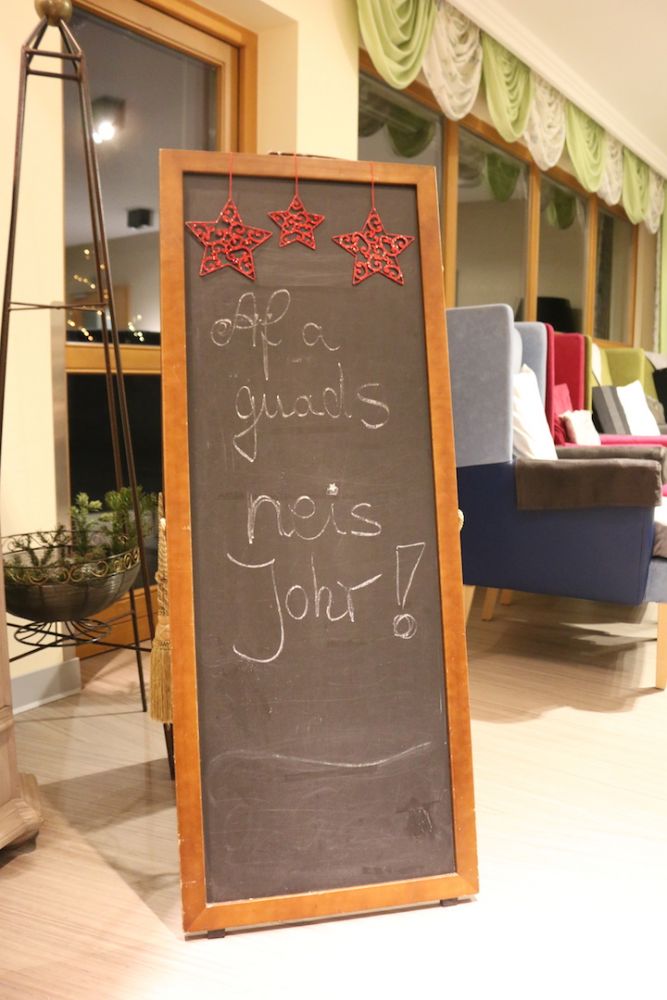 Af a
guads
neis
Johr!